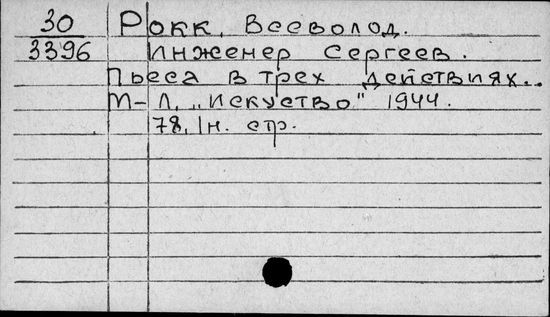 30 Рокк, Всеволод.
3396 Инженер Сергеев.
Пьеса в трех действиях..
М-Л, „Искуство" 1944.
78, 1н. стр.